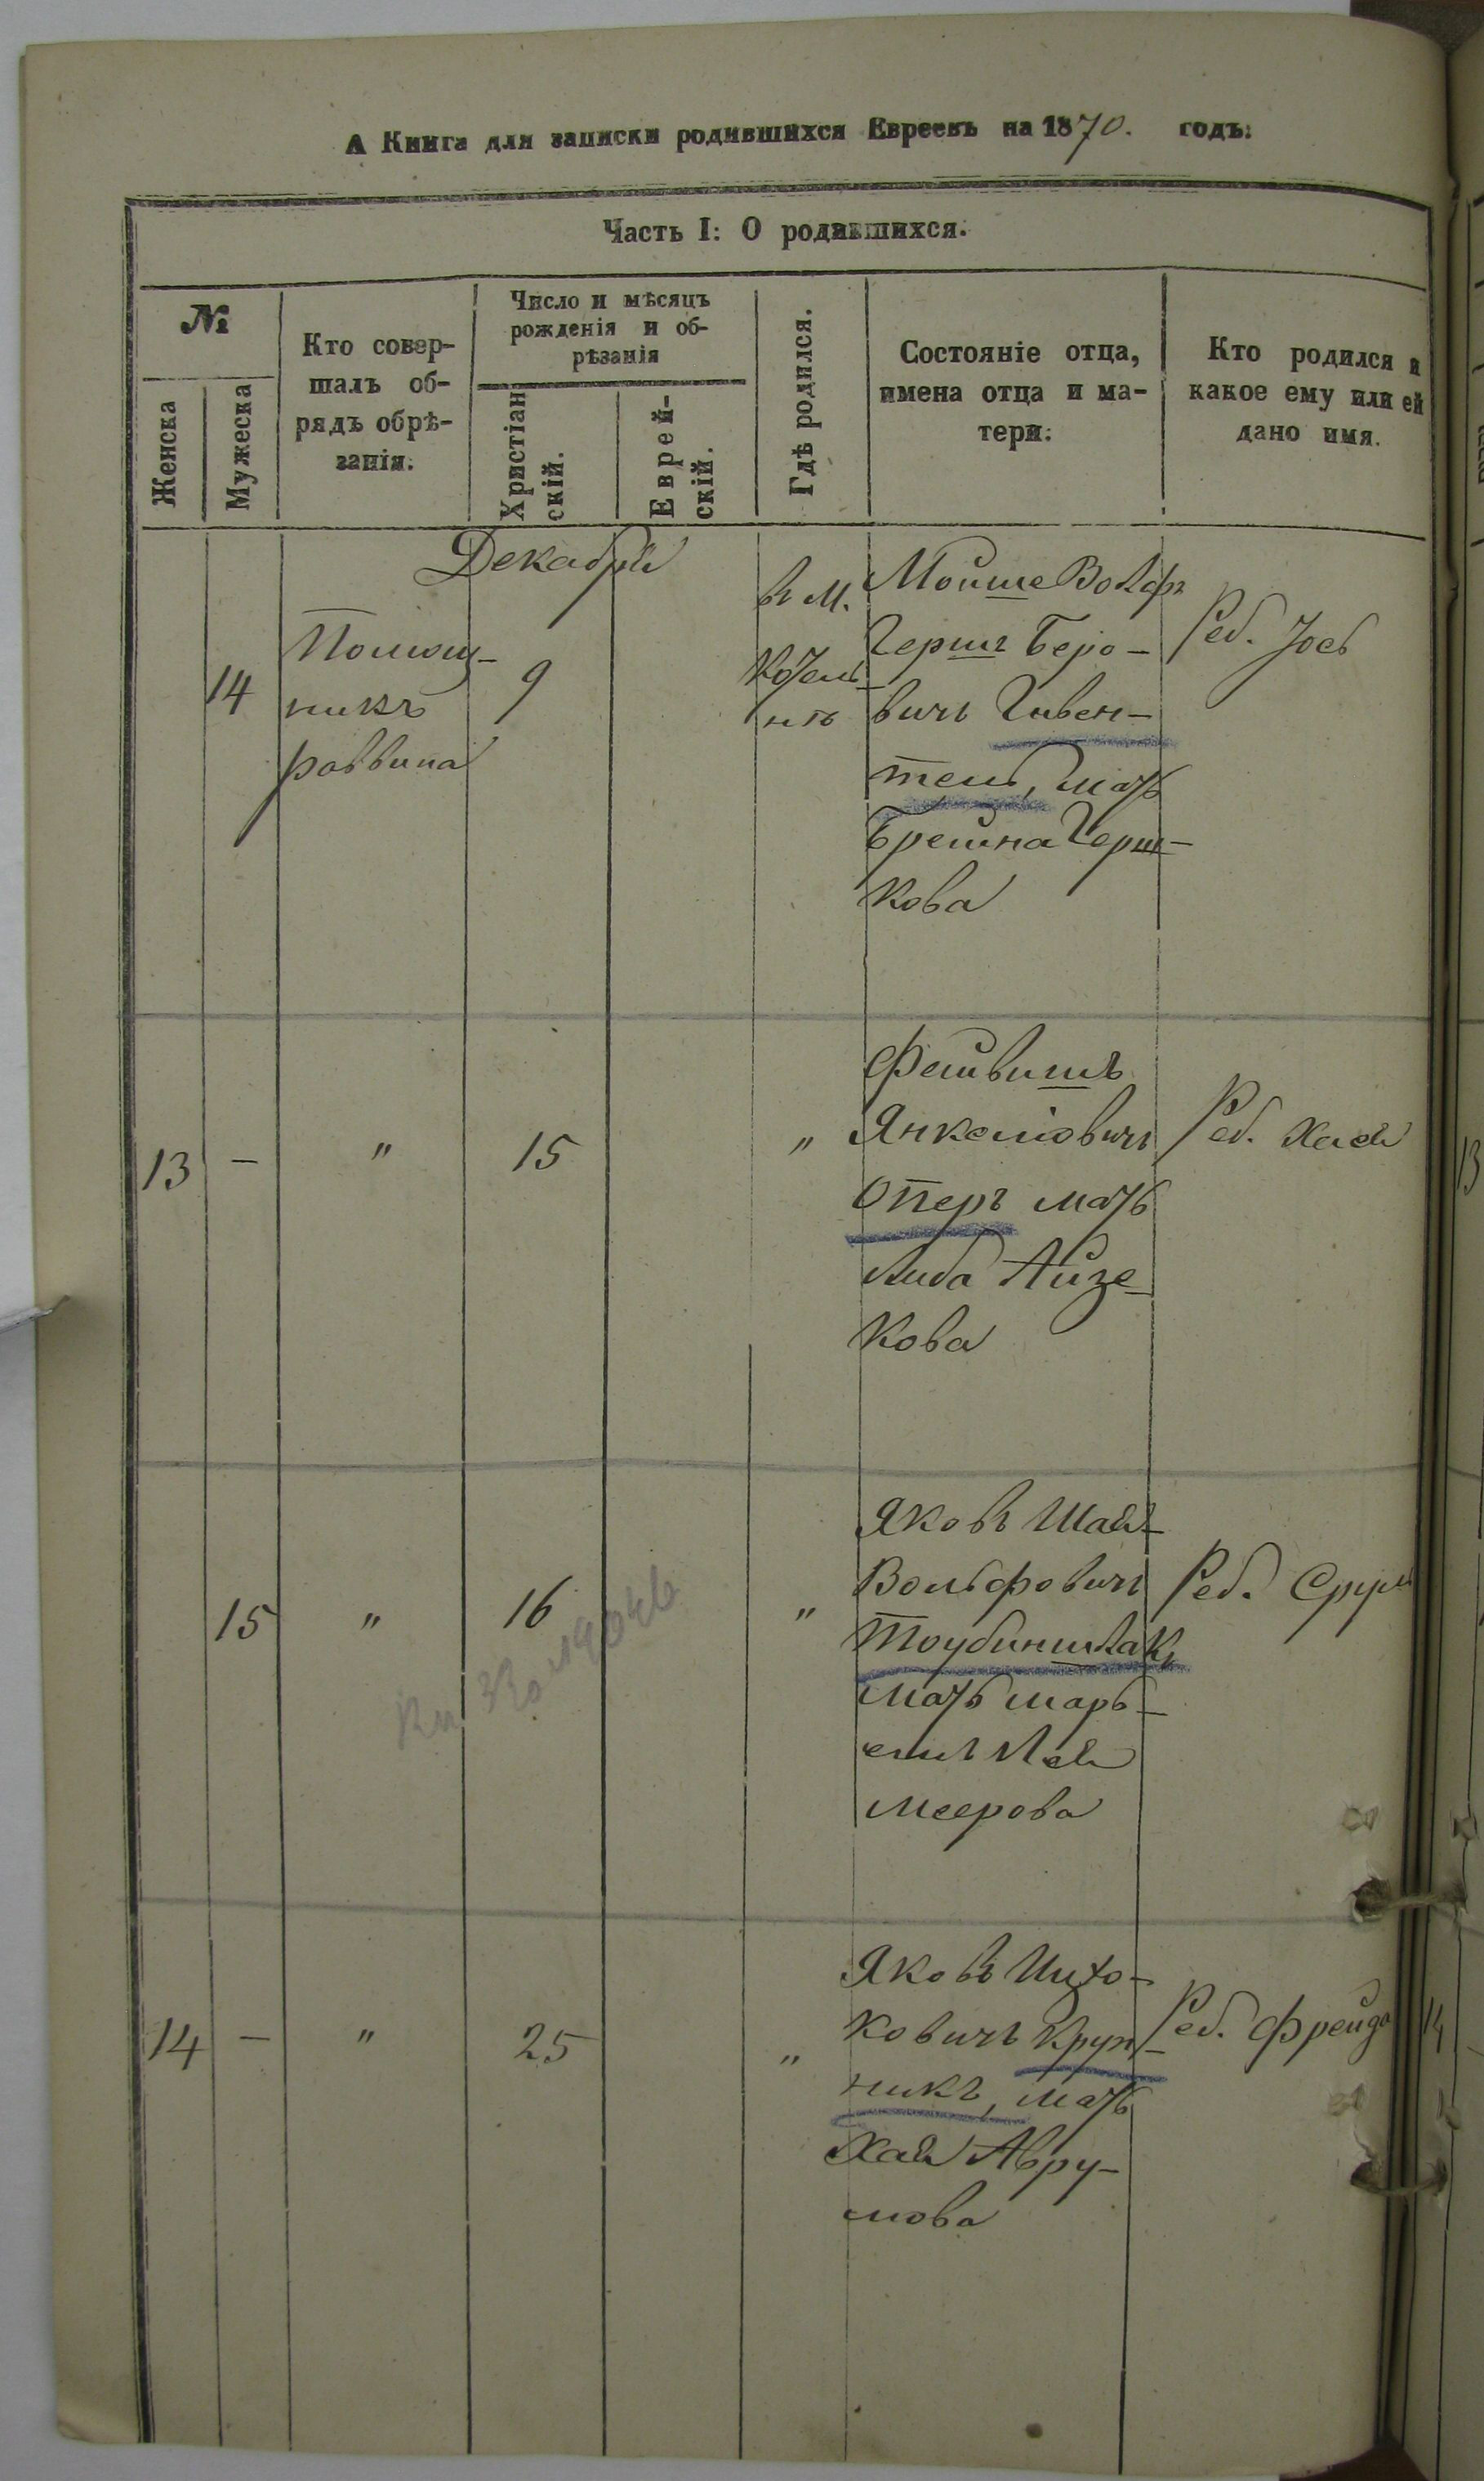 А Книга для записки родившихся Евреевъ на 1870. годъ:
Часть I: О родившихся.
№
Женска
Мужеска
Кто совер-
шалъ об-
рядъ обрѣ-
занія.
Число и мѣсяцъ
рожденія и об-
рѣзанія
Христіан
скій.
Еврей-
скій.
Гдѣ родился.
Состояніе отца,
имена отца и ма-
тери:
Кто родился и
какое ему или ей
дано имя.
Декабря
14
Помощ-
никъ
раввина
9
въ м.
Мойше Волфъ
Герш Беро-
вичъ Гивен-
тель, мать
Брейна Герш-
кова
Реб. Іось
13 — " 15 "
Файвишъ
Янкеліовичъ
Оперъ мать
Либа Айзе-
кова
Реб. Хая
15 " 16 "
Яковъ Шая-
Вольфовичъ
Тоубиншлакъ
мать
Лея
Меерова
Реб. Сруль
14 — " 25 "
Яковъ Ицко-
ковичъ Круп-
никъ, мать
Хая Авру-
мова
Реб. Фрейда
13
14